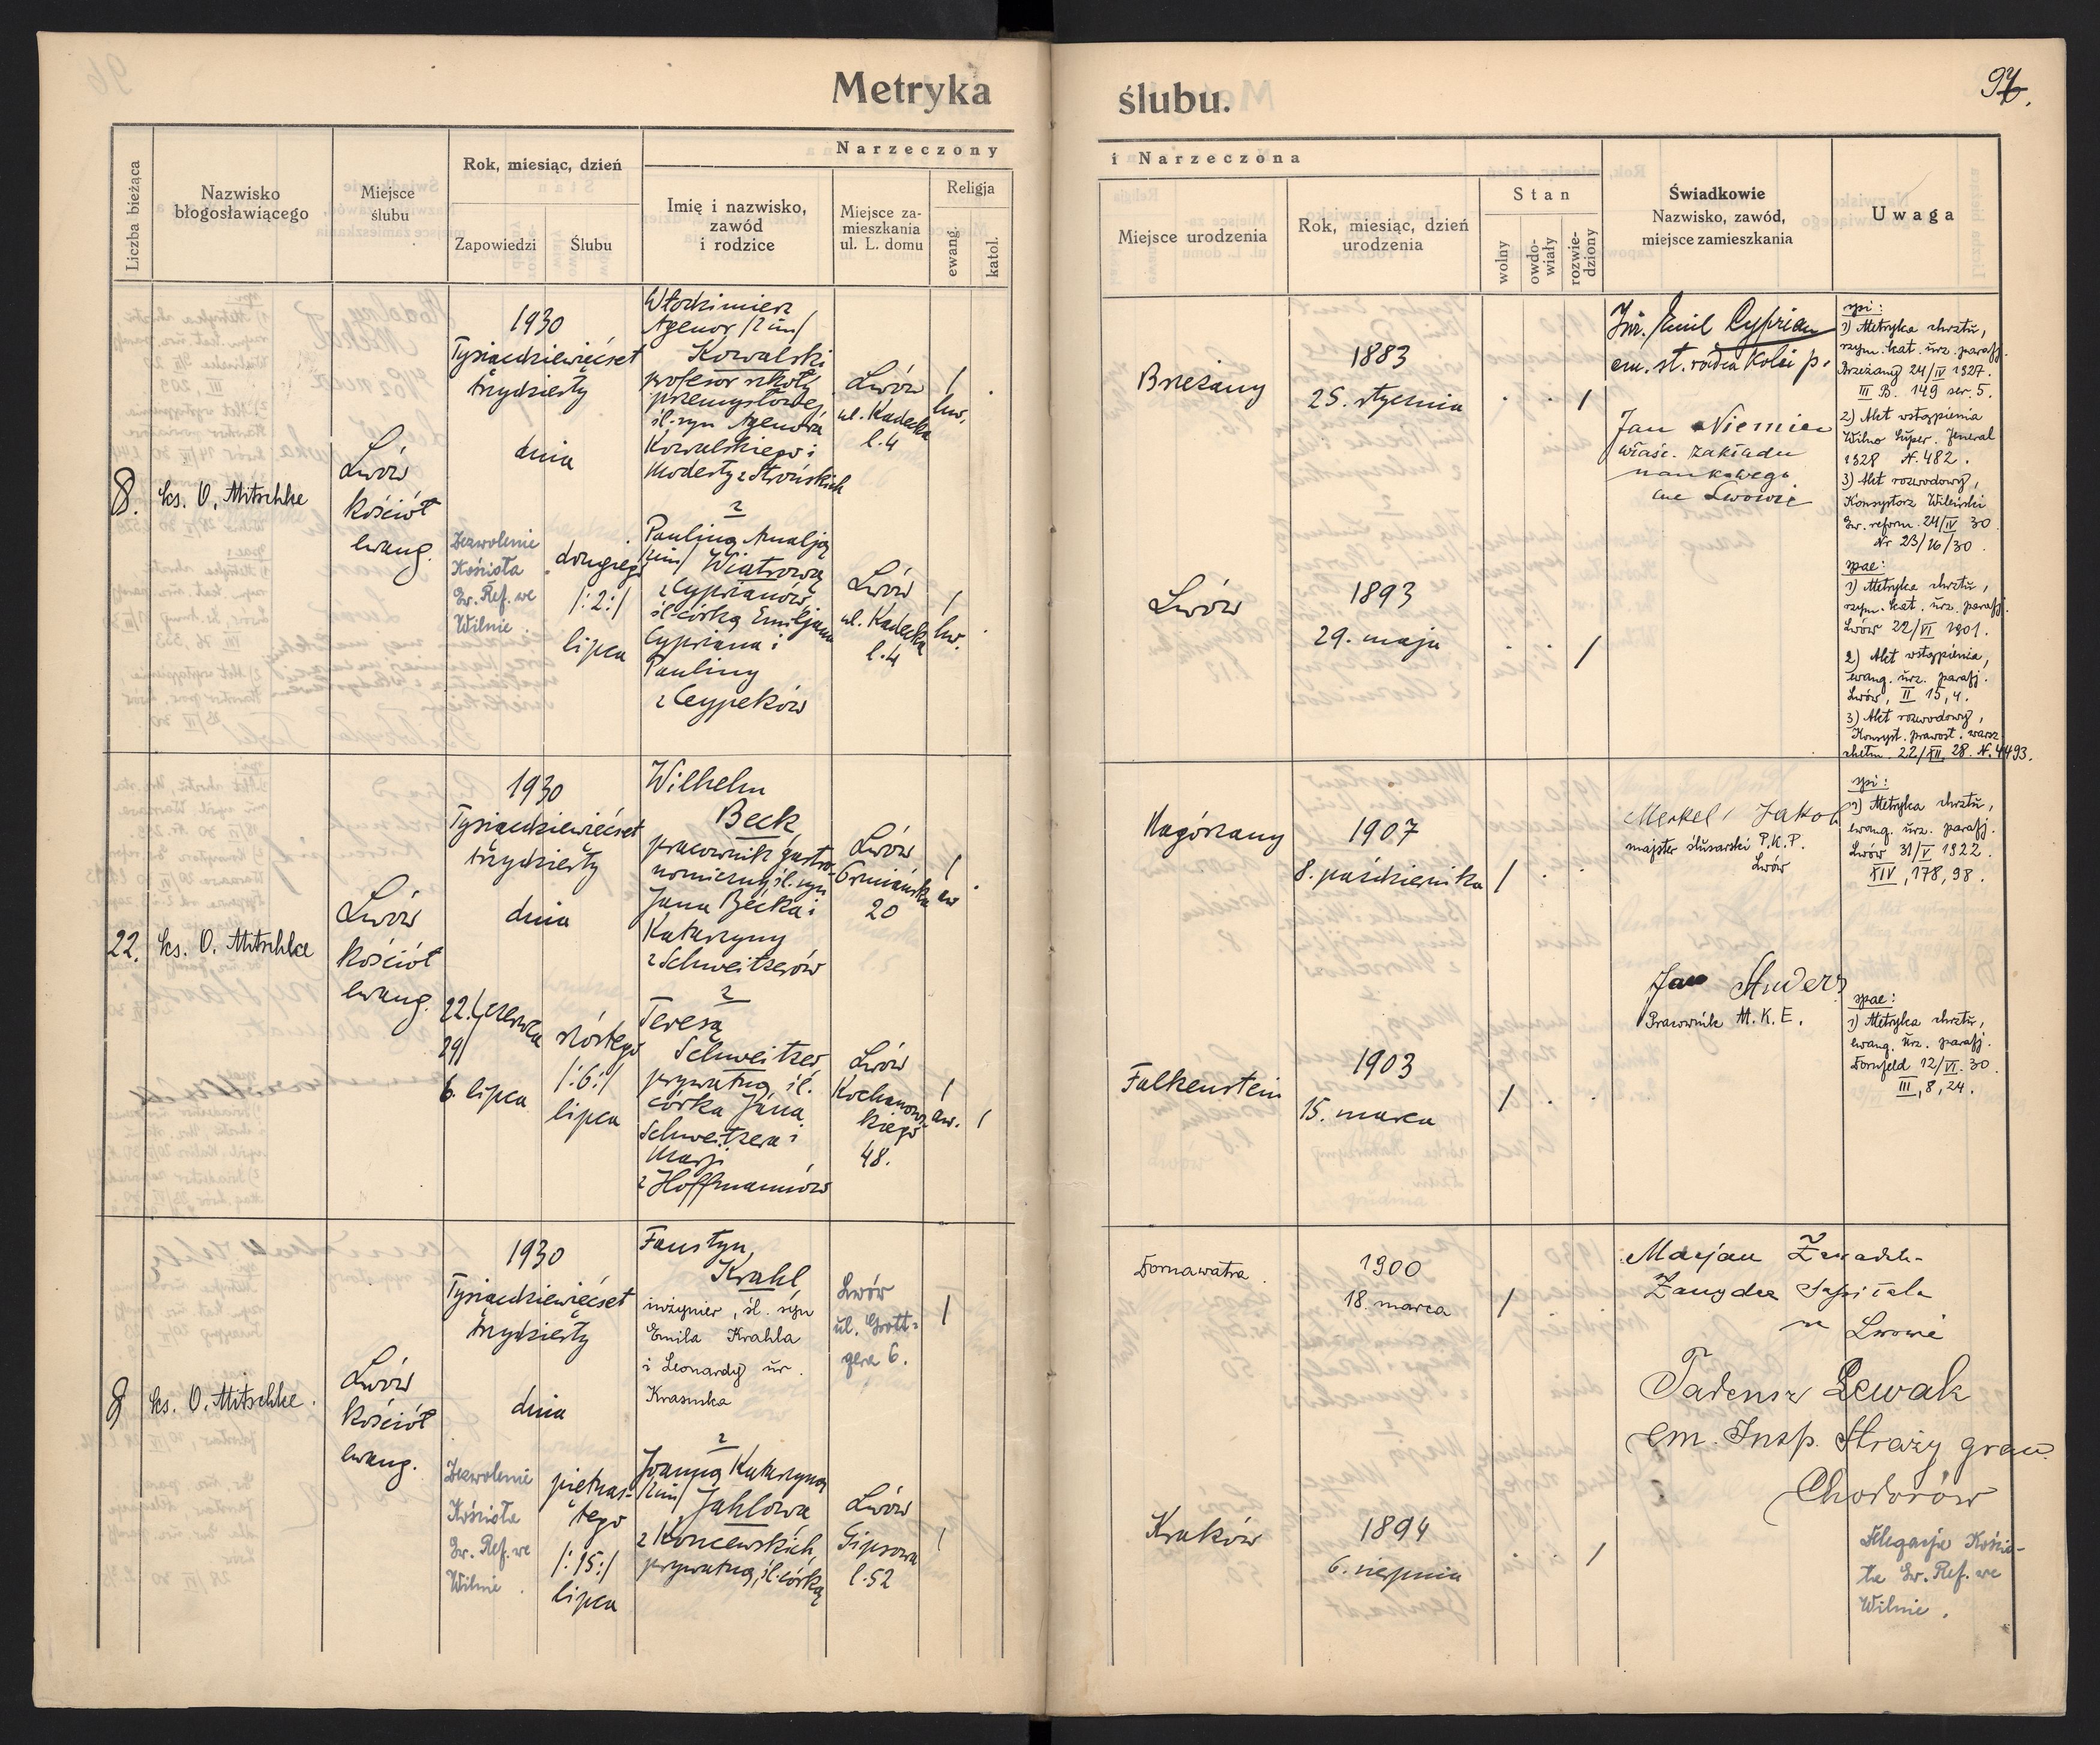 Metryka ślubu.
97.
Liczba bieżąca
Nazwisko
błogosławiącego
Miejsce
ślubu
Rok, miesiąc, dzień
Zapowiedzi
Ślubu
Narzeczony
Imię i nazwisko,
zawód
i rodzice
Miejsce za-
mieszkania
ul. L. domu
Religja
ewang.
katol.
i Narzeczona
Miejsce urodzenia
Rok, miesiąc, dzień
urodzenia
Stan
wolny
owdo-
wiały
rozwie-
dziony
Świadkowie
Nazwisko, zawód,
miejsce zamieszkania
Uwaga
8.
ks. O. Mitschke
Lwów
kościół
ewang.
1930
Tysiącdziewięćset
trzydziesty
dnia
Zezwolenie
Kościoła
Ew. Ref. we
Wilnie
drugiego
/:2:/
lipca
Włodzimierz
Agenor /2 im/
Kowalski
profesor szkoły
przemysłowej
śl. syn Agenora
Kowalskiego i
Modesty z Strońskich
z
Pauliną Amalją
/2im/ Wiatrową
z Cyprianów
śl. córką Emiljana
Cypriana i
Pauliny
z Ceypeków
Lwów
ul. Kadecka
l. 4
Lwów
ul. Kadecka
l. 4
Brzeżany
1883
25. stycznia
Lwów
1893
29. maja
Inż. Emil Cyprian
em. st. radca kolei p.
Jan Niemiec
właśc. zakładu
naukowego
we Lwowie
spi:
1) Metryka chrztu,
rzym. kat. urz. parafj.
Brzeżany 24/IV 1927.
III B. 149 ser. 5.
2) Akt wstąpienia
Wilno Super. Jeneral
1928 N. 482.
3) Akt rozwodowy,
Konsystorz Wileński
Ew. reform. 24/IV 30.
Nr 23/16/30.
spae:
1) Metryka chrztu,
rzym. kat. urz. parafj.
Lwów 22/VI 1901.
2) Akt wstąpienia,
ewang. urz. parafj.
Lwów, II 15, 4.
3) Akt rozwodowy,
Konsyst. prawosł. warsz.
chełm. 22/XII. 28. N. 4493.
22.
ks. O. Mitschke
Lwów
kościół
ewang.
1930
Tysiącdziewięćset
trzydziesty
dnia
22./czerwca
29/
6. lipca
szóstego
/:6:/
lipca
Wilhelm
Beck
pracownik gastro-
nomiczny śl. syn
Jana Becka i
Katarzyny
z Schweitzerów
z
Teresą
Schweitzer
prywatną śl.
córka Jana
Schweitzera i
Marji
z Hoffmannów
Lwów
Ormiańska
20
Lwów
Kochanows-
kiego
48.
Nagórzany
1907
8. października
Falkenstein
1903
15. marca
Merkel Jakob
majster ślusarski P.K.P.
Lwów
Jan Anders
Pracownik M.K.E.
spi:
1) Metryka chrztu,
ewang. urz. parafj.
Lwów 31/V 1922.
XIV, 178, 98.
spae:
1) Metryka chrztu,
ewang. urz. parafj.
Dornfeld 12/VI. 30.
III, 8, 24.
9
ks. O. Mitschke.
Lwów
kościół
ewang.
1930
Tysiącdziewięćset
trzydziesty
dnia
Zezwolenie
Kościoła
Ew. Ref. we
Wilnie.
piętnas-
tego
/:15:/
lipca
Faustyn,
Krahl
inżynier, śl. syn
Emila Krahla
i Leonardy ur.
Krasuska
z
Joanną Katarzyną
/2im/ Jahlową
z Koncewskich
prywatną, śl. córką
Lwów
ul. Grott-
gera 6.
Lwów
Gipsowa
l. 52
Dornawatra.
1900
18. marca
Kraków
1894
6. sierpnia
Marjan
Zarządca Szpitala
we Lwowie
Tadeusz Lewak
em. Insp. Straży gran.
Chodorów
Delegacja Kościo-
ła Ew. Ref. we
Wilnie.